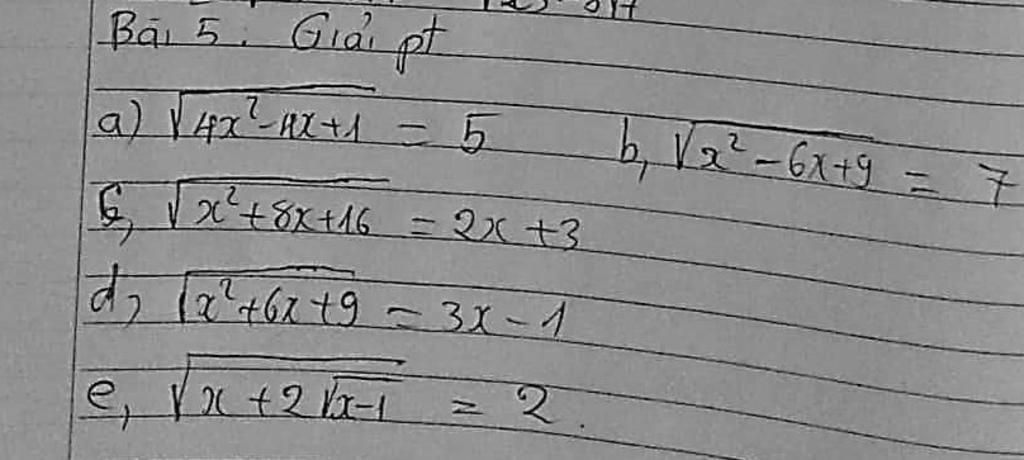 Bài 5. Giải pt
a) √(4x² - 4x + 1) = 5 b, √(x² - 6x + 9) = 7
c, √(x² + 8x + 16) = 2x + 3
d, √(x² + 6x + 9) = 3x - 1
e, √(x + 2√(x - 1)) = 2.